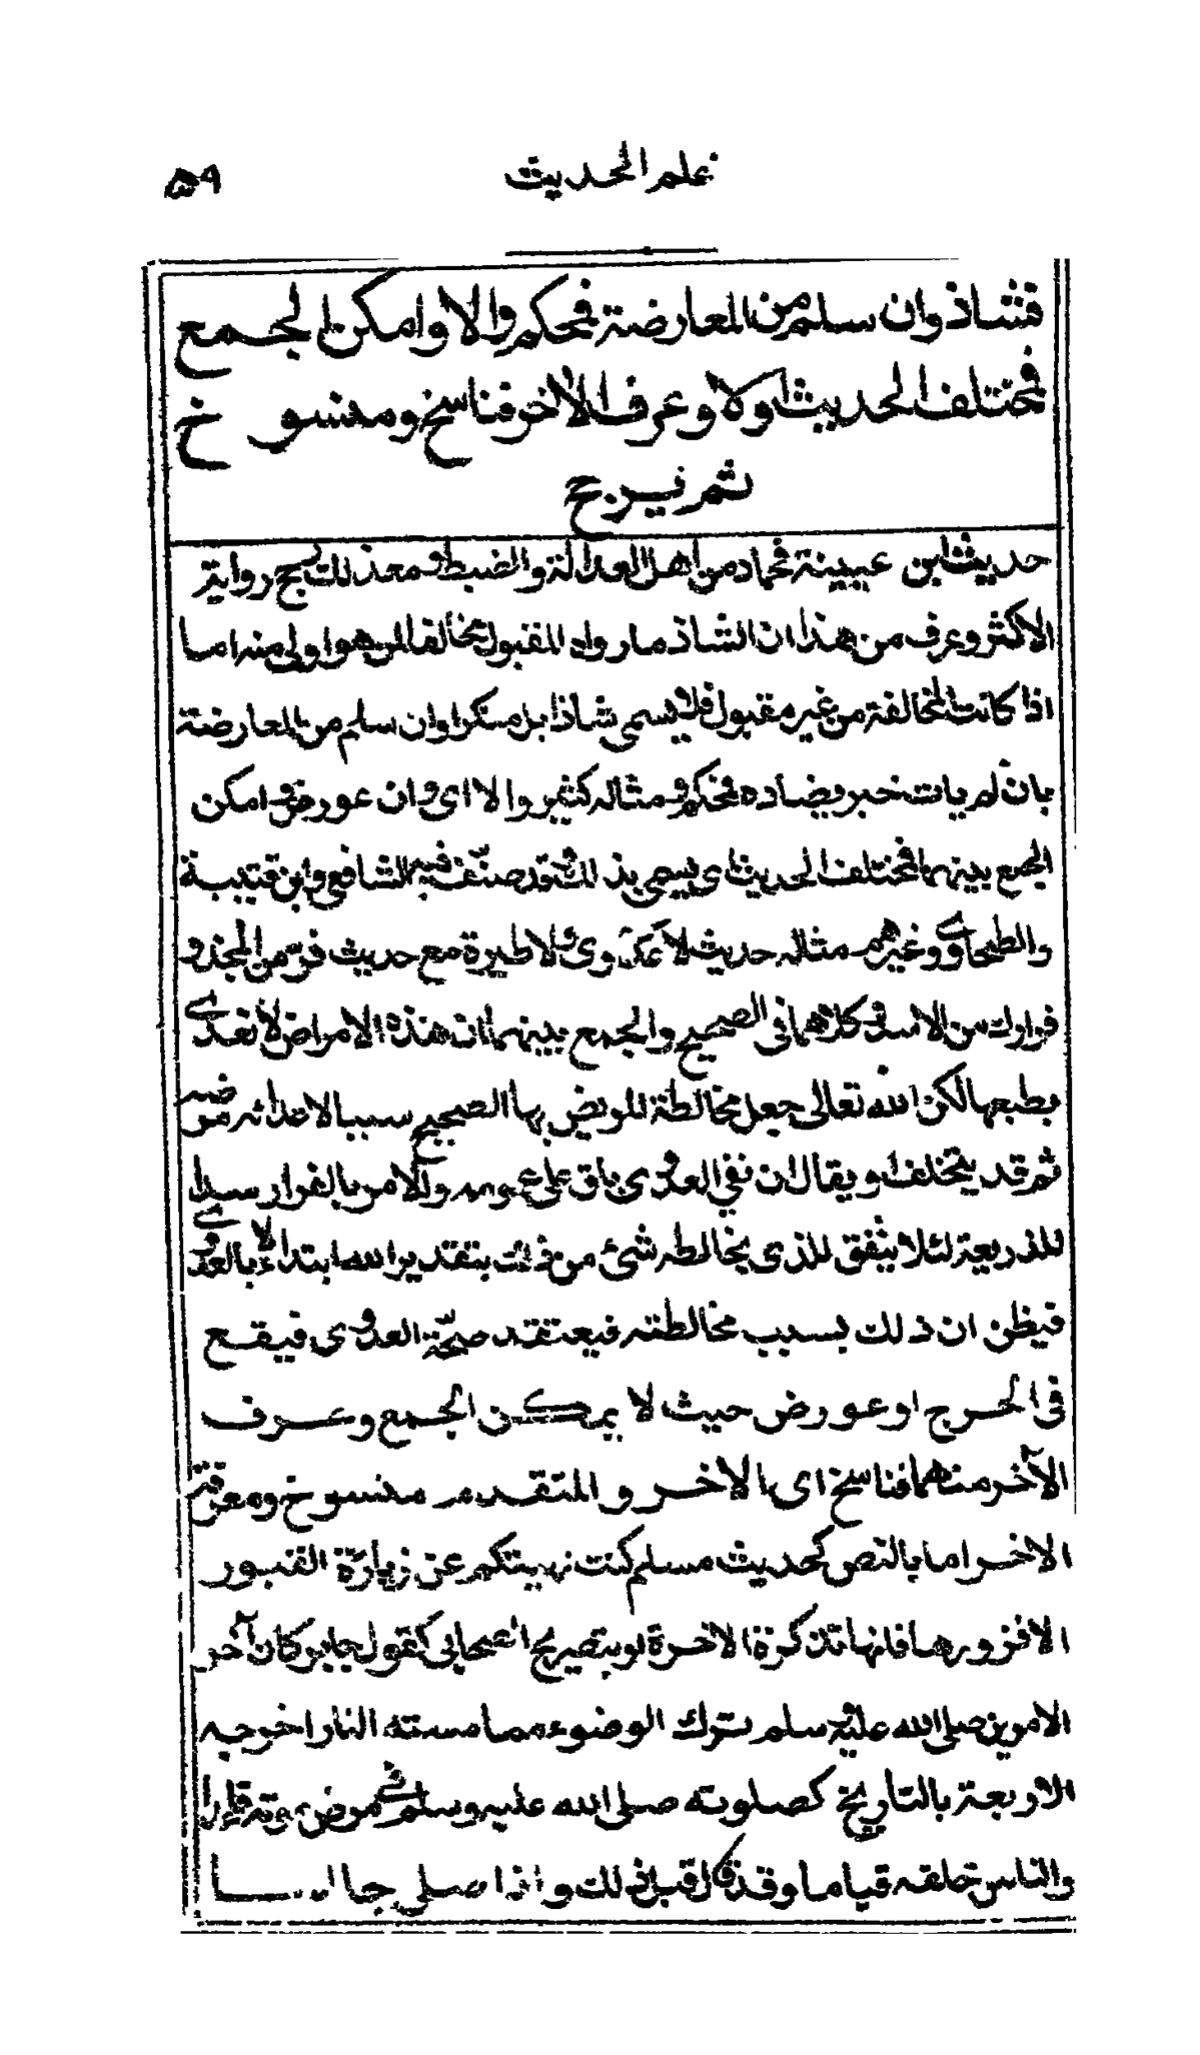 علم الحديث ۵۹
فشاذ وان سلم من المعارضة فمحكم والا وامكن الجمع
فمختلف الحديث اولا وعرف الاٰخر فناسخ ومنسوخ
ثم يرجح
حديث ابن عيينة فحماد من اهل العدالة والضبط ومع ذلك رجح رواية
الاكثر وعرف من هذا ان الشاذ ما رواه المقبول مخالفا لمن هو اولى منه اما
اذا كانت المخالفة من غير مقبول فلا يسمى شاذا بل منكرا وان سلم من المعارضة
بان لم يات خبر يضاده فمحكم ومثاله كثير والا اى وان عورض وامكن
الجمع بينهما فمختلف الحديث اى يسمى بذلك وقد صنّف فيه الشافعى وابن قتيبة
والطحاوى وغيرهم مثاله حديث لا عدوى ولا طيرة مع حديث فرّ من المجذوم
فرارك من الاسد وكلاهما فى الصحيح والجمع بينهما ان هذه الامراض لا تعدى
بطبعها لكن الله تعالى جعل مخالطة المريض بها الصحيح سببا لاعدائه مرضه
ثم قد يتخلف او يقال ان نفي العدوى باق على عمومه والامر بالفرار سدا
للذريعة لئلا يتفق للذى يخالطه شئ من ذلك بتقدير الله ابتداء لا بالعدوى
فيظن ان ذلك بسبب مخالطته فيعتقد صحّة العدوى فيقع
فى الحرج او عورض حيث لا يمكن الجمع وعرف
الآخر منهما فناسخ اى الاخر والمتقدم منسوخ ومعرفة
الاخر اما بالنص كحديث مسلم كنت نهيتكم عن زيارة القبور
الا فزورها فانها تذكرة الاخرة او بتصريح الصحابى كقول جابر كان آخر
الامرين صلى الله عليه وسلم ترك الوضوء مما مسته النار اخرجه
الاربعة او بالتاريخ كصلوته صلى الله عليه وسلم فى مرض موته قاعدا
والناس خلفه قياما وقد قال قبل ذلك واذا صلى جالسا